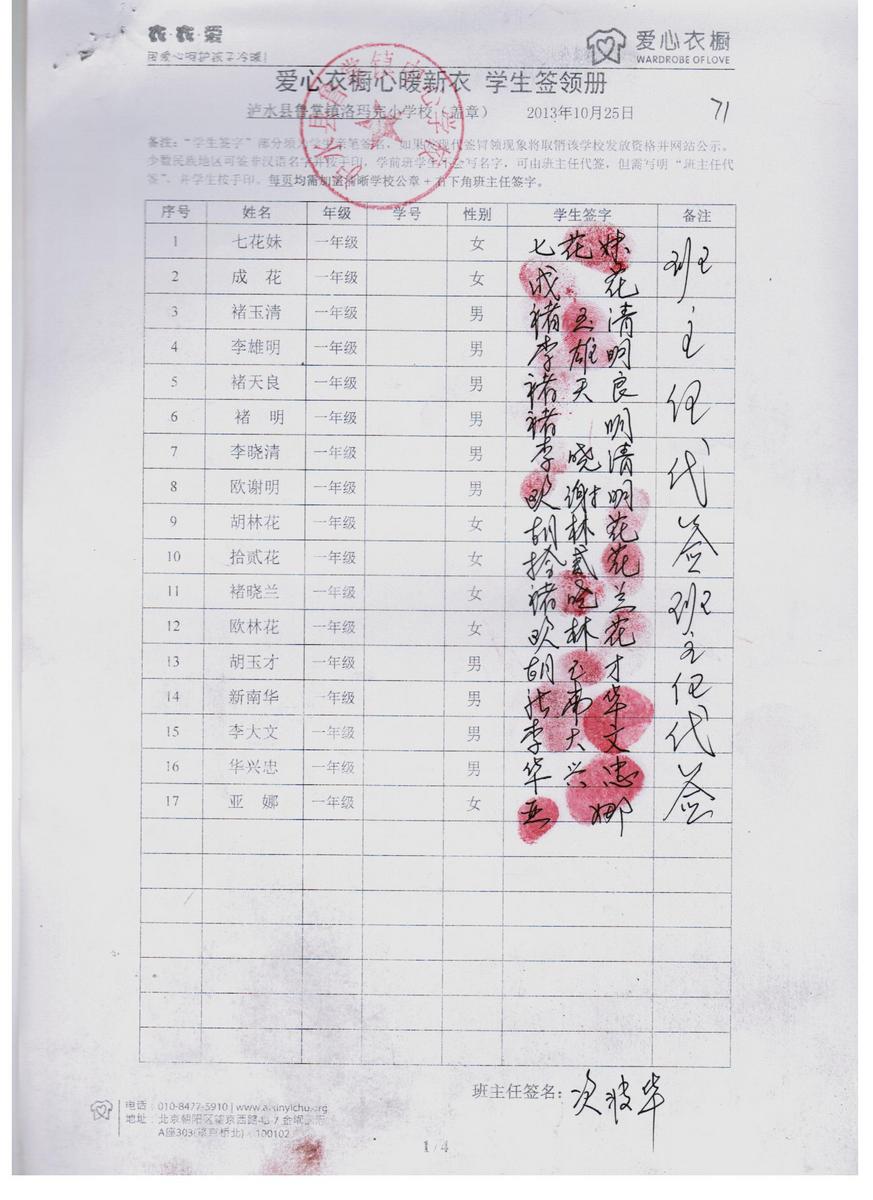 衣·衣·爱
用爱心呵护孩子冷暖!
爱心衣橱
WARDROBE OF LOVE
爱心衣橱心暖新衣 学生签领册
泸水县鲁掌镇洛玛完小学校（盖章） 2013年10月25日
71
备注：“学生签字”部分须为学生亲笔签名，如果发现代签冒领现象将取消该学校发放资格并网站公示。
少数民族地区可签非汉语名字并按手印，学前班学生不会写名字，可由班主任代签，但需写明“班主任代
签”，并学生按手印。每页均需加盖清晰学校公章+右下角班主任签字。
序号 姓名 年级 学号 性别 学生签字 备注
1 七花妹 一年级 女 七花妹
2 成 花 一年级 女 成花
3 褚玉清 一年级 男 褚玉清
4 李雄明 一年级 男 李雄明
5 褚天良 一年级 男 褚天良
6 褚 明 一年级 男 褚明
7 李晓清 一年级 男 李晓清
8 欧谢明 一年级 男 欧谢明
9 胡林花 一年级 女 胡林花
10 拾贰花 一年级 女 拾贰花
11 褚晓兰 一年级 女 褚晓兰
12 欧林花 一年级 女 欧林花
13 胡玉才 一年级 男 胡玉才
14 新南华 一年级 男 南华
15 李大文 一年级 男 李大文
16 华兴忠 一年级 男 华兴忠
17 亚 娜 一年级 女 亚娜
班主任代签班主任代签
班主任签名：
电话：010-8477-5910 | www.aixinyichu.org
地址：北京朝阳区望京西路
A座303(望京桥北) 100102
1 / 4